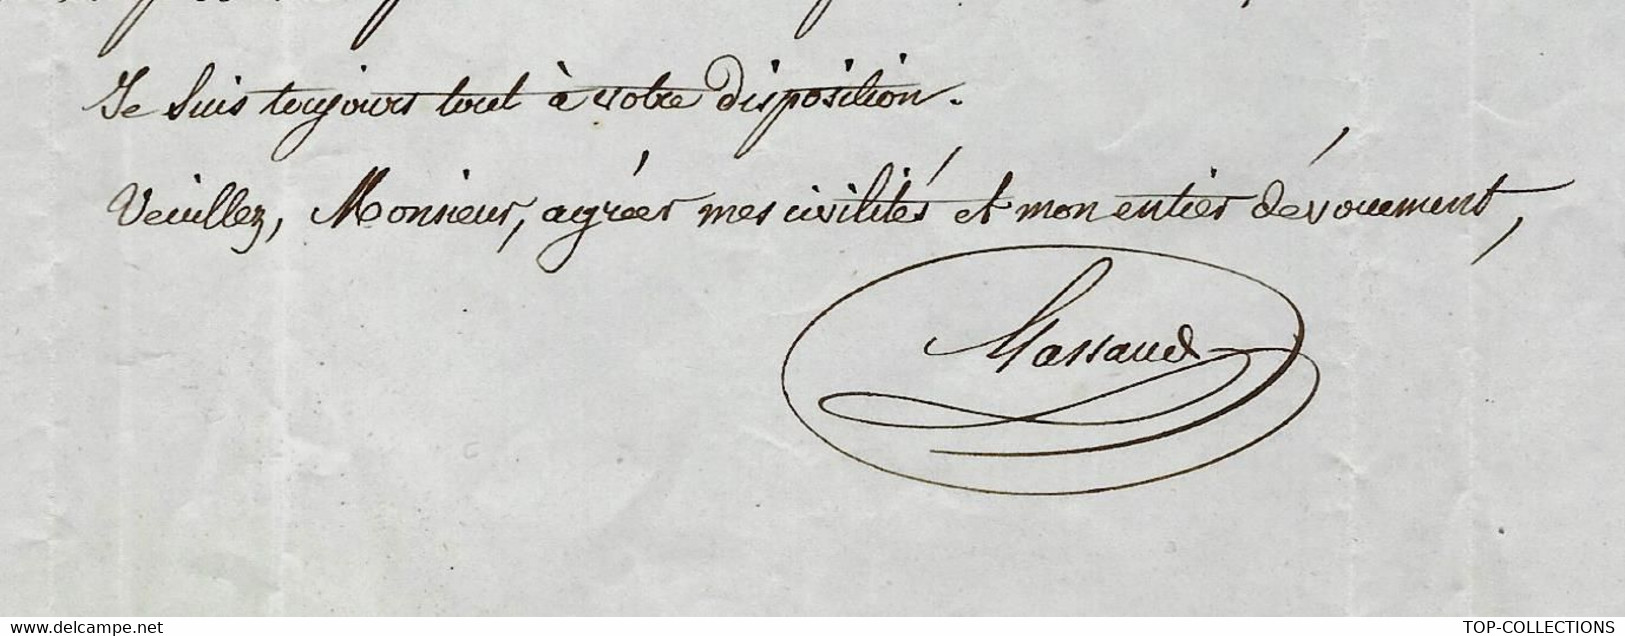 Je suis toujours tout à votre disposition.
Veuillez, Monsieur, agréer mes civilités et mon entier dévouement,
Massaud
www.delcampe.net
TOP-COLLECTIONS